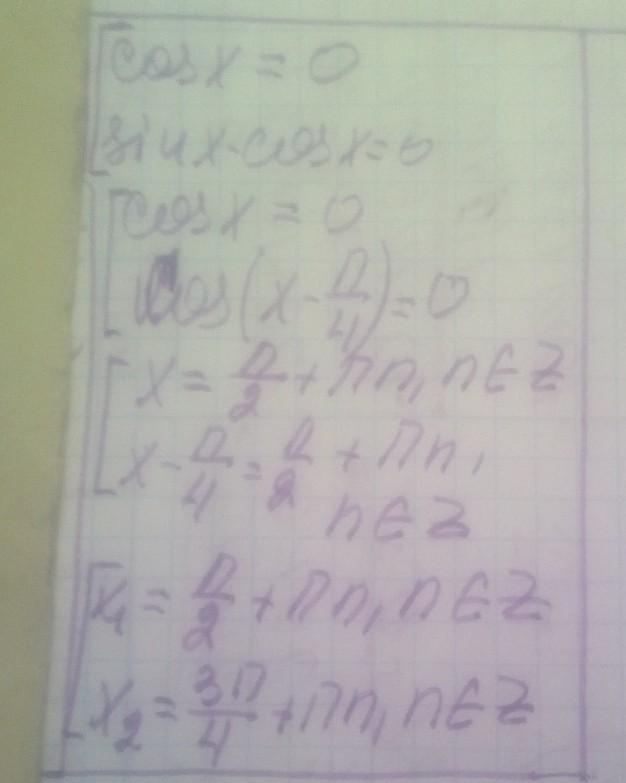 cosx = 0
sinx-cosx=0
cosx = 0
cos(x - П/4) = 0
x = П/2 + Пn, n ∈ Z
x - П/4 = П/2 + Пn,
n ∈ Z
x₁ = П/2 + Пn, n ∈ Z
x₂ = 3П/4 + Пn, n ∈ Z